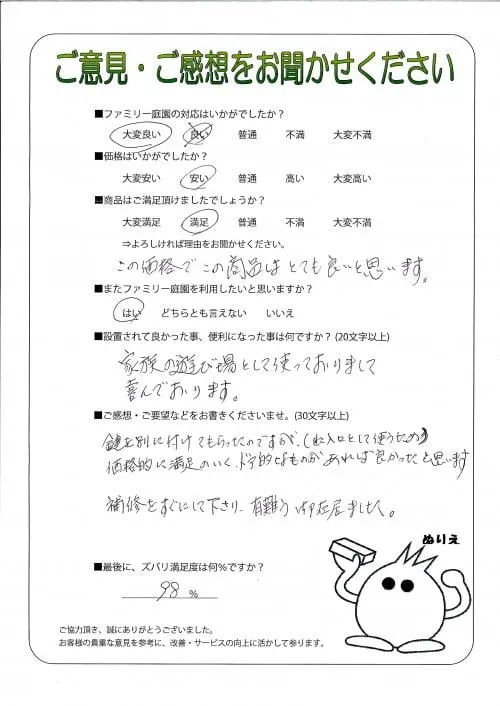 ご意見・ご感想をお聞かせください
■ファミリー庭園の対応はいかがでしたか？
大変良い 良い 普通 不満 大変不満
■価格はいかがでしたか？
大変安い 安い 普通 高い 大変高い
■商品はご満足頂けましたでしょうか？
大変満足 満足 普通 不満 大変不満
⇒よろしければ理由をお聞かせください。
この価格でこの商品はとても良いと思います。
■またファミリー庭園を利用したいと思いますか？
はい どちらとも言えない いいえ
■設置されて良かった事、便利になった事は何ですか？(20文字以上)
家族の遊び場として使っておりまして
喜んでおります。
■ご感想・ご要望などをお書きくださいませ。(30文字以上)
鍵を別に付けてもらったのですが、(出入口として使うため)
価格的に満足のいく、ドア的なものがあれば良かったと思います
補修をすぐにして下さり、有難う御在居ました。
ぬりえ
■最後に、ズバリ満足度は何%ですか？
98 %
ご協力頂き、誠にありがとうございました。
お客様の貴重な意見を参考に、改善・サービスの向上に活かして参ります。